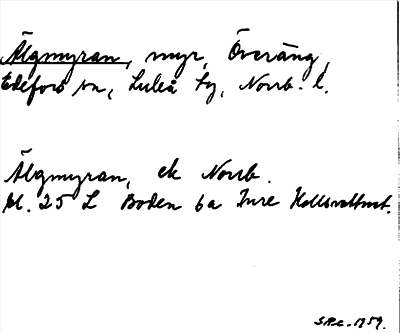 Älgmyran, myr, Överäng,
Edefors sn, Luleå ty, Norrb. l.
Älgmyran, ek Norrb.
bl. 25 L Boden 6a Inre Kallsvattnet.
S.P.e. 1959.